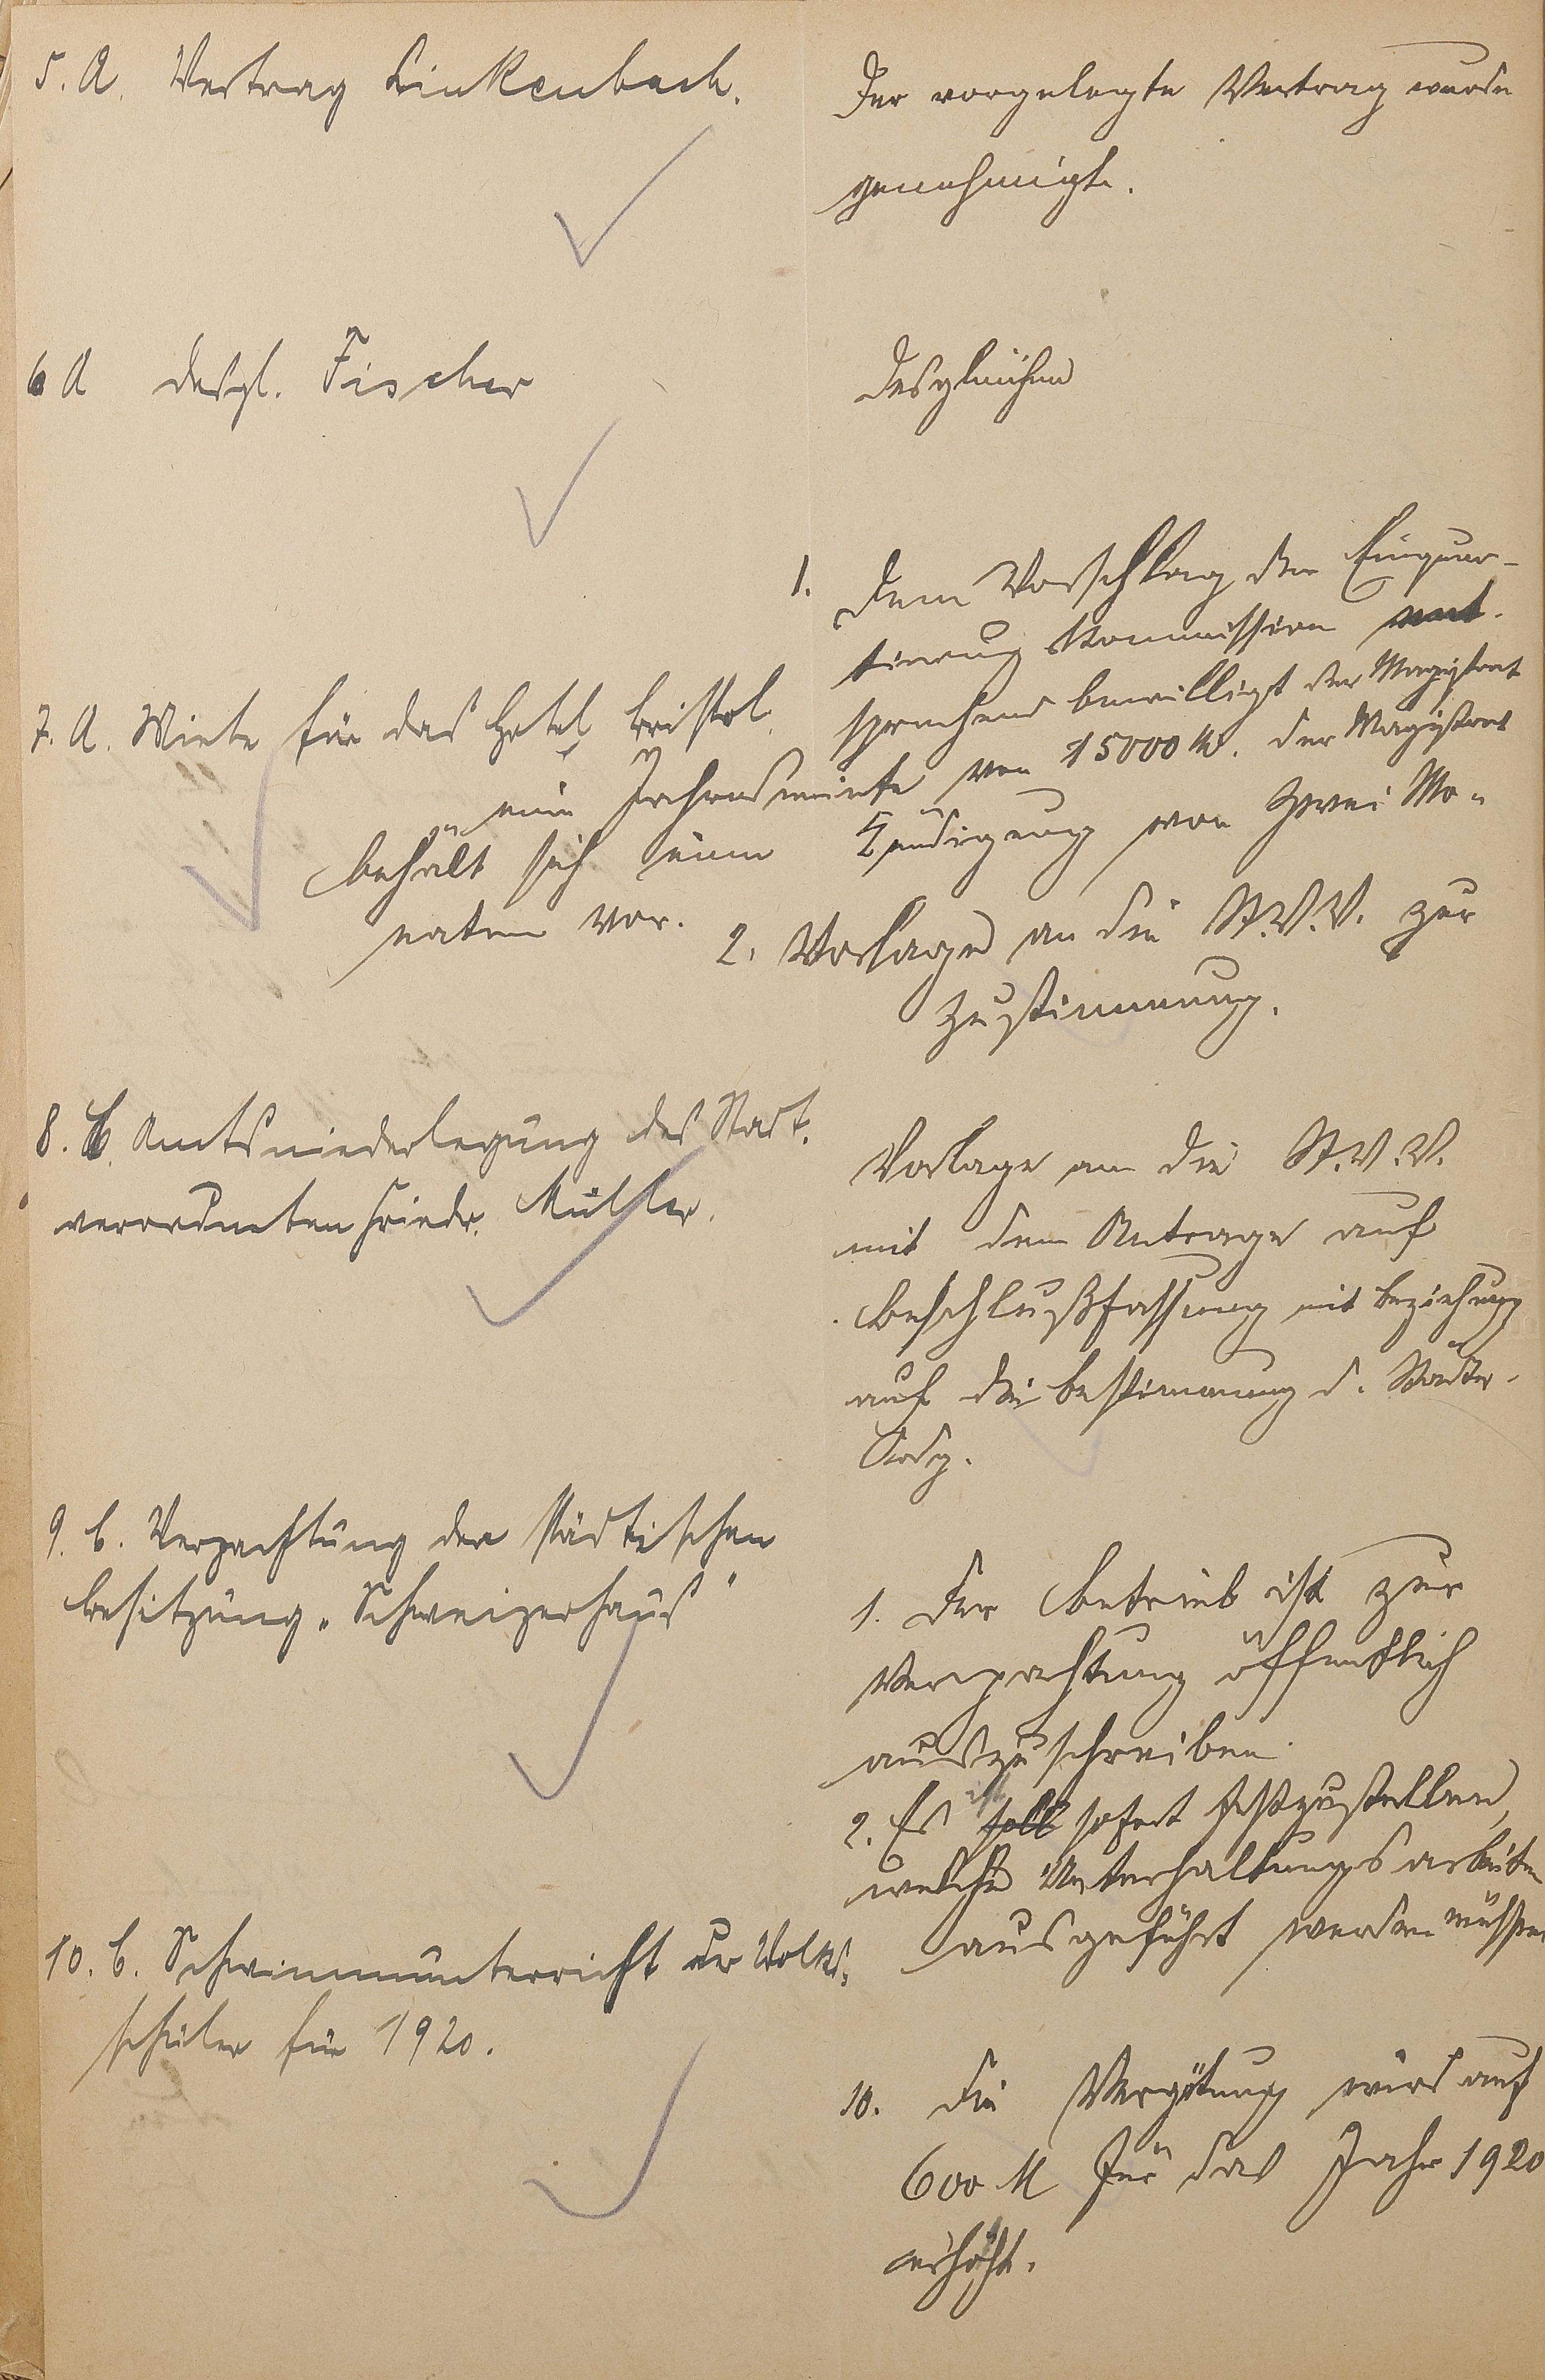 5. A. Vertrag Linkenbach.
Der vorgelegte Vertrag wurde
genehmigt.
6 A desgl. Fischer
Desgleichen
1. Dem Vorschlag der Einquar-
tierung Kommission ent-
7. A. Miete für das Hotel Bristol.
sprechend bewilligt der Magistrat
eine Jahresmiete von 15000 M. Der Magistrat
behält sich eine Kündigung von zwei Mo-
naten vor.
2. Vorlage an die St.V.V. zur
Zustimmung.
8. B. Amtsniederlegung des Stadt-
verordneten Friedr. Müller.
Vorlage an die St.V.V.
mit dem Antrage auf
Beschlußfassung mit Beziehung
auf die Bestimmung d. Städte-
Ordg.
9. B. Verpachtung der städtischen
Besitzung „Schweizerhaus"
1. Der Betrieb ist zur
Verpachtung öffentlich
auszuschreiben.
2. Es soll ist sofort festzustellen,
welche Unterhaltungsarbeiten
ausgeführt werden müssen
10. B. Schwimmunterricht der Volks-
schüler für 1920.
10. Die Vergütung wird auf
600 M für das Jahr 1920
erhöht.